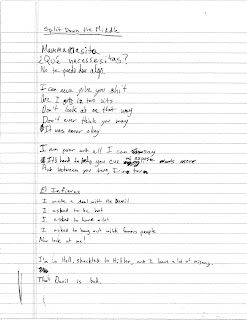 Split Down the Middle
Mamma Masita
¿Qué necessesitas?
No te puedo dar algo.
I can never give you shit
Don't look at me that way
Don't ever think you may
It was never okay
I am your art all I can say
It's hard to help you cure
But between you two, I'm
El Infierno
I make a deal with the Devil
I asked to be hot
I asked to have a lot
I asked to hang out with famous people
Now look at me!
I'm in Hell, shackled to Hitler, but I have a lot of money.
That Devil is bad.